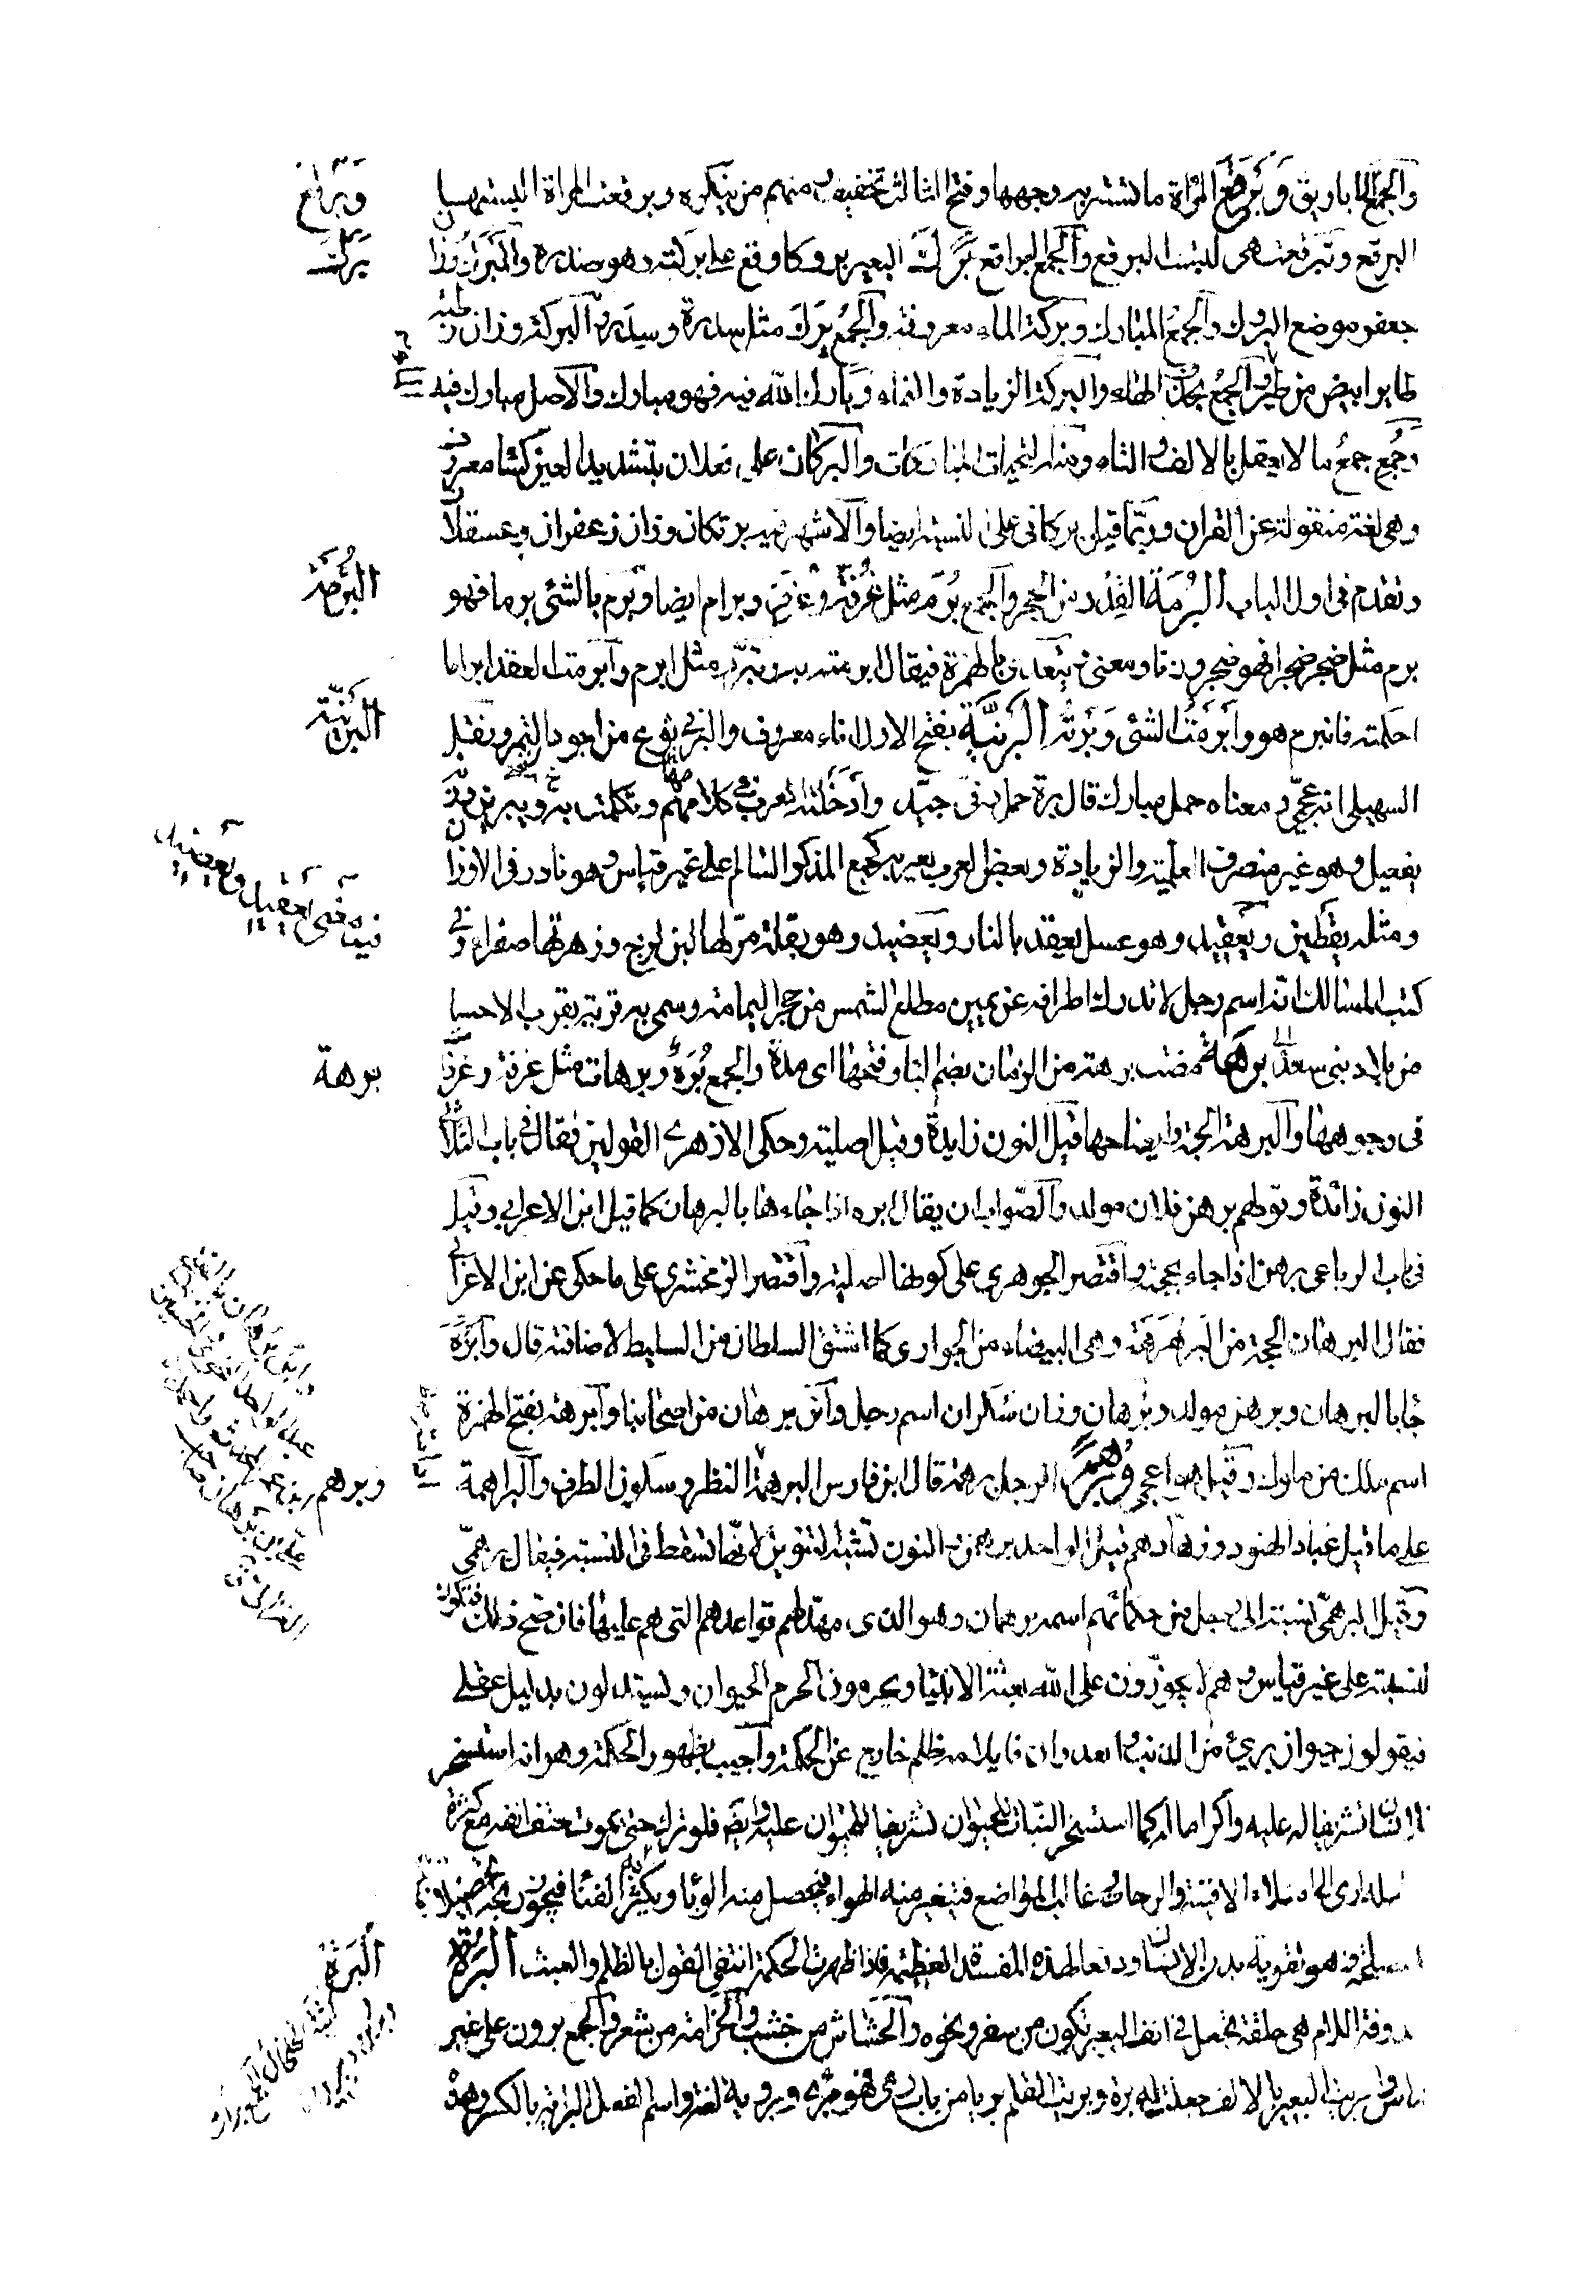 والجمع الاباريق وبرقع المرأة ما تستتر به وجهها وفتح الثالث تخفيف ومنهم من ينكره وبرقعت المراة البستها
البرقع وتبرقعت هى لبست البرقع والجمع البراقع برك البعير بروكا وقع على بركته وهو صدره والمبرك وزان
جعفر موضع البروك والجمع المبارك وبركة الماء معروفة والجمع برك مثل سدرة وسدر والبركة وزان رطبة
طاير ابيض من طير الماء والجمع برك بحذف الهاء والبركة الزيادة والنماء وبارك الله فيه فهو مبارك والاصل مبارك فيه
وجمع جمع ما لا يعقل بالالف والتاء ومنه التحيات المباركات والبركان على فعلان بتشديد العين كساء معروف
وهى لغة منقولة عن الفراء وربما قيل بركانى على النسبة ايضا والاشهر فيه برنكان وزان زعفران وعسقلان
وتقدم فى اول الباب البرمة القدر من الحجر والجمع برم مثل غرفة وغرف وبرام ايضا وبرم بالشئ برما فهو
برم مثل ضجر ضجرا فهو ضجر وزنا ومعنى ويتعدى بالهمزة فيقال ابرمته به وتبرم مثل ابرم وابرمت العقد ابراما
احكمته فانبرم هو وابرمت الشئ دبرته البرنية بفتح الاول اناء معروف والبرنى نوع من اجود التمر ونقل
السهيلى انه عجمى ومعناه حمل مبارك قال بر حمل ونى جيد وادخلته العرب فى كلامها وتكلمت به ويبرين وزن
يفعيل وهو غير منصرف للعلمية والزيادة وبعض العرب يعربه كجمع المذكر السالم على غير قياس وهو نادر فى الاوزان
ومثله يقطين ويعقيد وهو عسل يعقد بالنار ويعضيد وهو بقلة مرة لها لبن لزج وزهرتها صفراء وفى
كتب المسالك انه اسم رمل لا تدرك اطرافه عن يمين مطلع الشمس من حجر اليمامة وسمى به قرية بقرب الاحساء
من بلاد بنى سعد برهة مضت برهة من الزمان بضم الباء وفتحها اى مدة والجمع بره وبرهات مثل غرفة وغرف
فى وجوهها والبرهان الحجة وايضاحها قيل النون زايدة وقيل اصلية وحكى الازهرى القولين فقال فى باب الثلاثى
النون زائدة وقولهم برهن فلان مولد والصواب ان يقال ابره اذا جاء بالبرهان كما قيل ابن الاعرابى وقيل
فى باب الرباعى برهن اذا جاء بحجته واقتصر الجوهرى على كونها اصلية واقتصر الزمخشرى على ما حكى عن ابن الاعرابى
فقال البرهان الحجة من البرهرهة وهى البيضاء من الجوارى كما اشتق السلطان من السليط لاضاءته قال وابره
جا بالبرهان وبرهن مولد وبرهان وزان سكران اسم رجل وابن برهان من اصحابنا وابرهة بفتح الهمزة
اسم ملك من ملوك وقيل اعجمى وبرهم الرجل برهمة قال ابن فارس البرهمة النظر وسكون الطرف والبراهمة
على ما قيل عباد الهنود وزهادهم قيل الواحد برهمن والنون تشبه التنوين لانها تسقط فى النسبة فيقال برهمى
وقيل البرهمى نسبة الى رجل من حكمائهم اسمه برهمان وهو الذى مهد لهم قواعدهم التى هم عليها فان صح ذلك فتكون
النسبة على غير قياس وهم لا يجوزون على الله بعثة الانبيا ويحرمون لحوم الحيوان ويستدلون بدليل عقلى
فيقولون حيوان برئ من الذنب والعدوان فايلامه ظلم خارج عن الحكمة واجيب بظهور الحكمة وهو انه استسخر
للانسان تشريفا له عليه واكراما له كما استسخر النبات للحيوان تشريفا للحيوان عليه وايضا فلو ترك حتى يموت حتف انفه مع كثرة
تناسله ادى الى امتلاء الافنية والرحاب وغالب المواضع فتغير منه الهواء فيحصل منه الوباء ويكثر به الفناء فيجوز ذبحه تحصيلا
للمصلحة وهو تقوية بدن الانسان ودفعا لهذه المفسدة العظيمة فاذا ظهرت الحكمة انتفى القول بالظلم والعبث البرة
محذوفة اللام هى حلقة تجعل فى انف البعير تكون من صفر ونحوه والخشاش من خشب والخزامة من شعر والجمع برون على غير
قياس وابريت البعير بالالف جعلت له برة وبريت القلم بريا من باب رمى فهو مبرى وبروته لغة واسم الفعل البراية بالكسر وهذه
وبرقع
برك
البرمة
البرنية
فيه معنى يعقيل ويعضيد
برهة
وبرهم
البرة